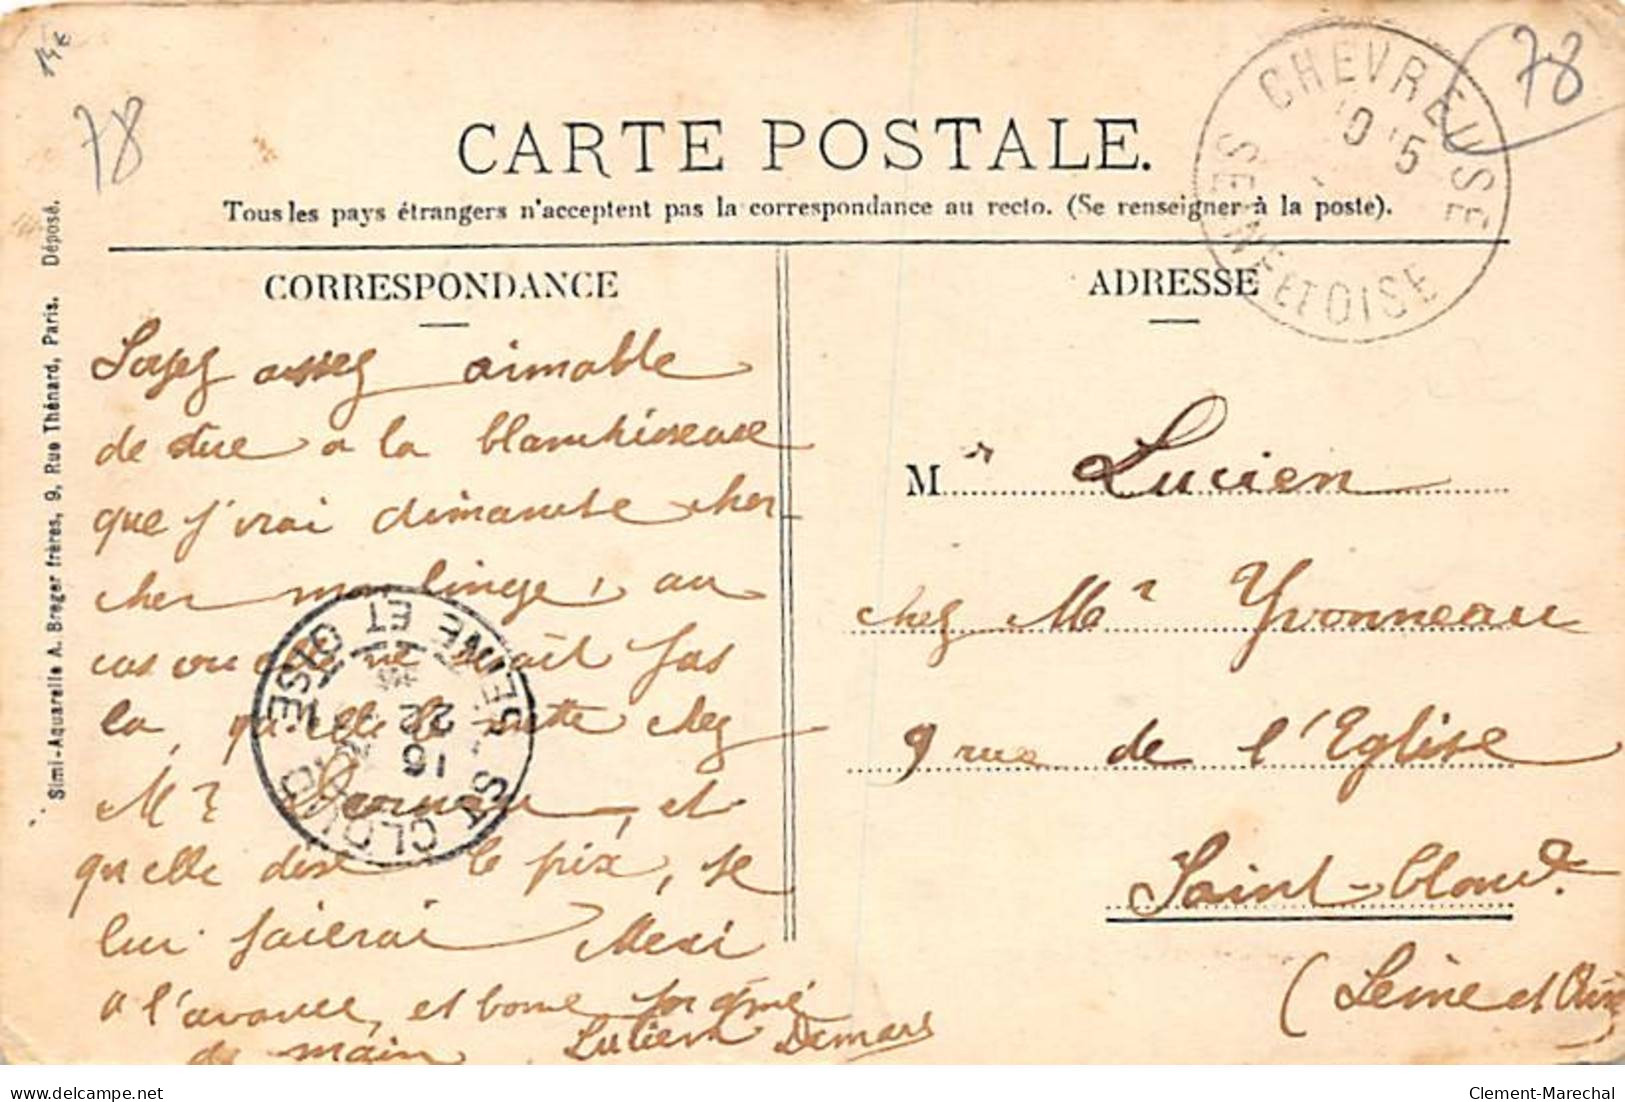 14€
78
78
CHEVREUSE
SEINE ET OISE
CARTE POSTALE.
Tous les pays étrangers n'acceptent pas la correspondance au recto. (Se renseigner à la poste).
Simi-Aquarelle A. Breger frères, 9, Rue Thénard, Paris. Déposé.
CORRESPONDANCE
Soyez assez aimable
de dire a la blanchisseuse
que j'irai dimanche cher
cher mon linge, au
cas ou elle ne serait pas
la, qu'elle le mette chez
Mr et
qu'elle dise le prix, je
lui paierai Merci
a l'avance, et bonne poignée
de main Lucien Demars
ST CLOUD
SEINE ET OISE
16
22
ADRESSE
Mr Lucien
chez Mr Yvonneau
9 rue de l'Eglise
Saint-Cloud.
(Seine et Oise
Delcampe.net
Clement-Marechal